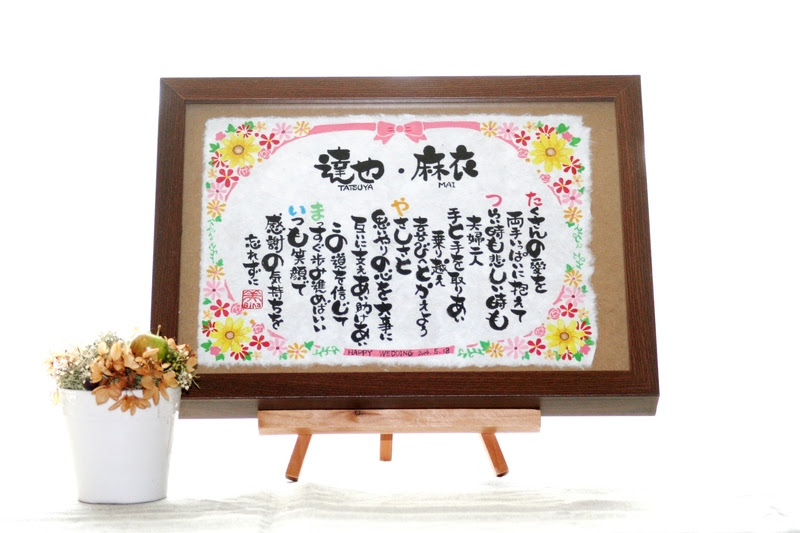 達也・麻衣
TATSUYA MAI
たくさんの愛を
両手いっぱいに抱えて
つらい時も悲しい時も
夫婦二人
手と手を取りあい
乗り越え
喜びへとかえよう
やさしさと
思いやりの心を大事に
互いに支えあい助けあい
この道を信じて
まっすぐ歩み進めばいい
いつも笑顔で
感謝の気持ちを
忘れずに
HAPPY WEDDING 5.18